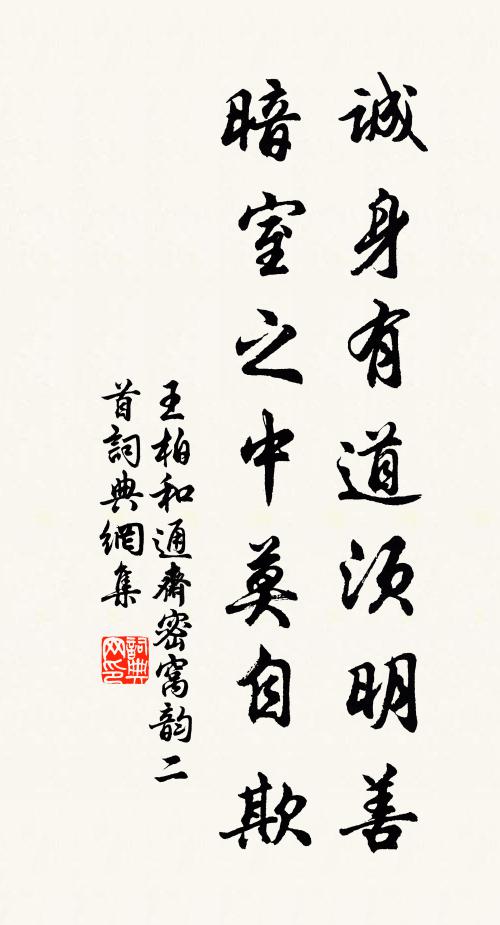 誠身有道須明善
暗室之中莫自欺
王柏和通齋密窩韵二
首詞典網集
詞典
网印